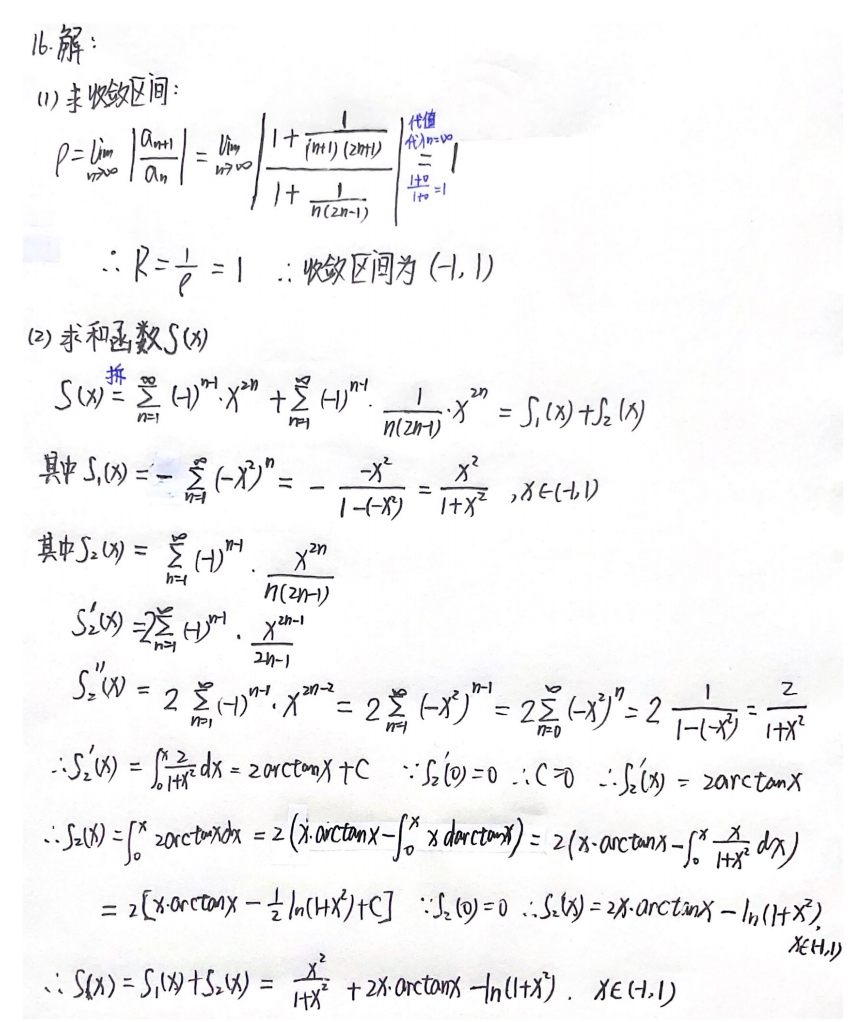 16.解：
(1) 求收敛区间：
ρ = lim_{n→∞} |a_{n+1}/a_n| = lim_{n→∞} |(1 + 1/((n+1)(2n+1)))/(1 + 1/(n(2n-1)))| = 1
代值
代入n=∞
(1+0)/(1+0) = 1
∴ R = 1/ρ = 1 ∴ 收敛区间为 (-1, 1)
(2) 求和函数S(x)
拆
S(x) = ∑_{n=1}^{∞} (-1)^{n-1}·x^{2n} + ∑_{n=1}^{∞} (-1)^{n-1}·1/(n(2n-1))·x^{2n} = S₁(x)+S₂(x)
其中 S₁(x) = -∑_{n=1}^{∞} (-x²)^n = - (-x²)/(1-(-x²)) = x²/(1+x²), x∈(-1,1)
其中 S₂(x) = ∑_{n=1}^{∞} (-1)^{n-1}·x^{2n}/(n(2n-1))
S₂'(x) = 2∑_{n=1}^{∞} (-1)^{n-1}·x^{2n-1}/(2n-1)
S₂''(x) = 2∑_{n=1}^{∞} (-1)^{n-1}·x^{2n-2} = 2∑_{n=1}^{∞} (-x²)^{n-1} = 2∑_{n=0}^{∞} (-x²)^n = 2 1/(1-(-x²)) = 2/(1+x²)
∴ S₂'(x) = ∫₀^x 2/(1+x²) dx = 2arctanx+C ∵ S₂'(0)=0 ∴ C=0 ∴ S₂'(x) = 2arctanx
∴ S₂(x) = ∫₀^x 2arctanxdx = 2(x·arctanx-∫₀^x x darctanx) = 2(x·arctanx-∫₀^x x/(1+x²) dx)
= 2[x·arctanx - 1/2 ln(1+x²)+C] ∵ S₂(0)=0 ∴ S₂(x) = 2x·arctanx - ln(1+x²),
x∈(-1,1)
∴ S(x) = S₁(x)+S₂(x) = x²/(1+x²) + 2x·arctanx - ln(1+x²). x∈(-1,1)